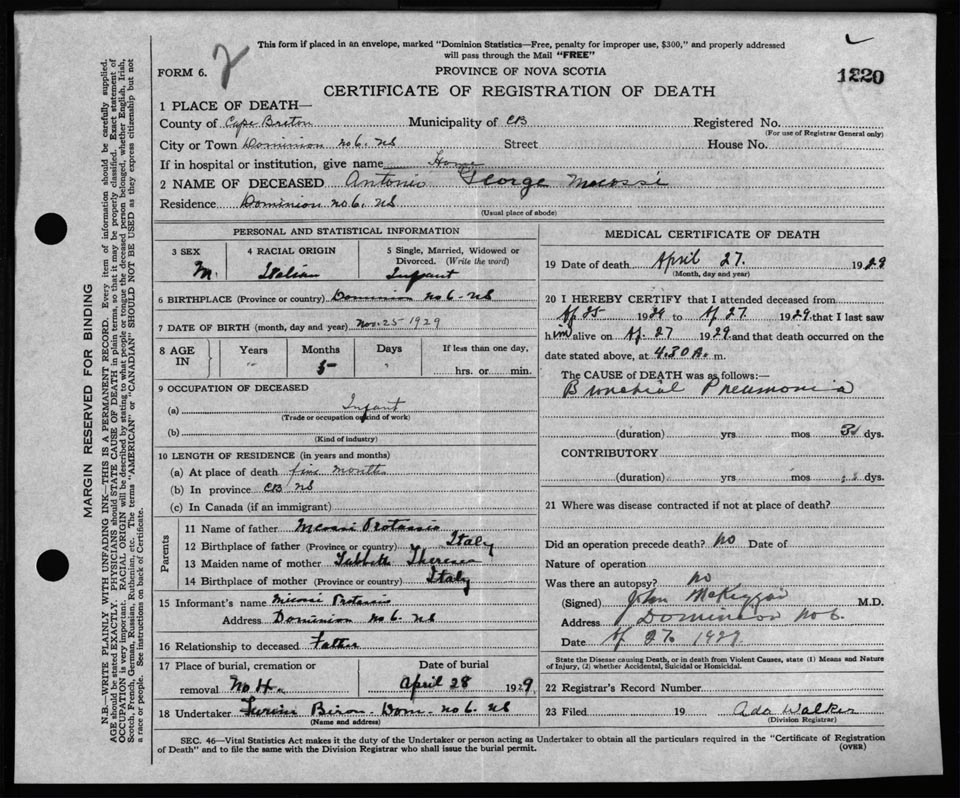 This form if placed in an envelope, marked "Dominion Statistics—Free, penalty for improper use, $300," and properly addressed
will pass through the Mail "FREE"
2
FORM 6.
PROVINCE OF NOVA SCOTIA
1220
CERTIFICATE OF REGISTRATION OF DEATH
1 PLACE OF DEATH—
County of Cape Breton Municipality of CB Registered No.
(For use of Registrar General only)
City or Town Dominion no 6. NS Street House No.
If in hospital or institution, give name Home
2 NAME OF DECEASED Antonio George
Residence Dominion no 6. NS
(Usual place of abode)
PERSONAL AND STATISTICAL INFORMATION
3 SEX
M.
4 RACIAL ORIGIN
Italian
5 Single, Married, Widowed or
Divorced. (Write the word)
Infant
6 BIRTHPLACE (Province or country) Dominion no 6 - NS
7 DATE OF BIRTH (month, day and year) Nov. 25 1929
8 AGE
IN
Years
Months
5
Days
If less than one day,
hrs. or min.
9 OCCUPATION OF DECEASED
(a) Infant
(Trade or occupation or kind of work)
(b)
(Kind of industry)
10 LENGTH OF RESIDENCE (in years and months)
(a) At place of death five months
(b) In province CB NS
(c) In Canada (if an immigrant)
Parents
11 Name of father
12 Birthplace of father (Province or country) Italy
13 Maiden name of mother Theresa
14 Birthplace of mother (Province or country) Italy
15 Informant's name
Address Dominion no 6. NS
16 Relationship to deceased Father
17 Place of burial, cremation or
removal
Date of burial
April 28 1929
18 Undertaker Dom. no 6. NS
(Name and address)
MEDICAL CERTIFICATE OF DEATH
19 Date of death April 27. 1929
(Month, day and year)
20 I HEREBY CERTIFY that I attended deceased from
Ap 25 1929 to Ap 27 1929 that I last saw
him alive on Ap. 27 1929 and that death occurred on the
date stated above, at 4.30 A. m.
The CAUSE of DEATH was as follows:—
Bronchial Pneumonia
(duration) yrs mos 3 dys.
CONTRIBUTORY
(duration) yrs mos dys.
21 Where was disease contracted if not at place of death?
Did an operation precede death? No Date of
Nature of operation
Was there an autopsy? No
(Signed) John M.D.
Address Dominion No 6.
Date Ap 27 1929
State the Disease causing Death, or in death from Violent Causes, state (1) Means and Nature
of Injury, (2) whether Accidental, Suicidal or Homicidal.
22 Registrar's Record Number
23 Filed 19 Ada Walker
(Division Registrar)
SEC. 46—Vital Statistics Act makes it the duty of the Undertaker or person acting as Undertaker to obtain all the particulars required in the "Certificate of Registration
of Death" and to file the same with the Division Registrar who shall issue the burial permit.
(OVER)
MARGIN RESERVED FOR BINDING
N.B—WRITE PLAINLY WITH UNFADING INK—THIS IS A PERMANENT RECORD. Every item of information should be carefully supplied.
AGE should be stated EXACTLY. PHYSICIANS should STATE CAUSE OF DEATH in plain terms, so that it may be properly classified. Exact statement of
OCCUPATION is very important. RACIAL ORIGIN will be described by stating to what people or tongue the deceased person belonged, whether English, Irish,
Scotch, French, German, Russian, Ruthenian, etc. The terms "AMERICAN" or "CANADIAN" SHOULD NOT BE USED as they express citizenship but not
a race or people. See instructions on back of Certificate.